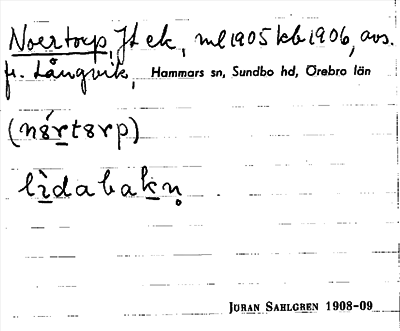 Noertorp, Jt ek, ml 1905 kb 1906, avs.
fr. Långvik, Hammars sn, Sundbo hd, Örebro län
(nǿrtørp)
lìdabakn̥
JÖRAN SAHLGREN 1908-09